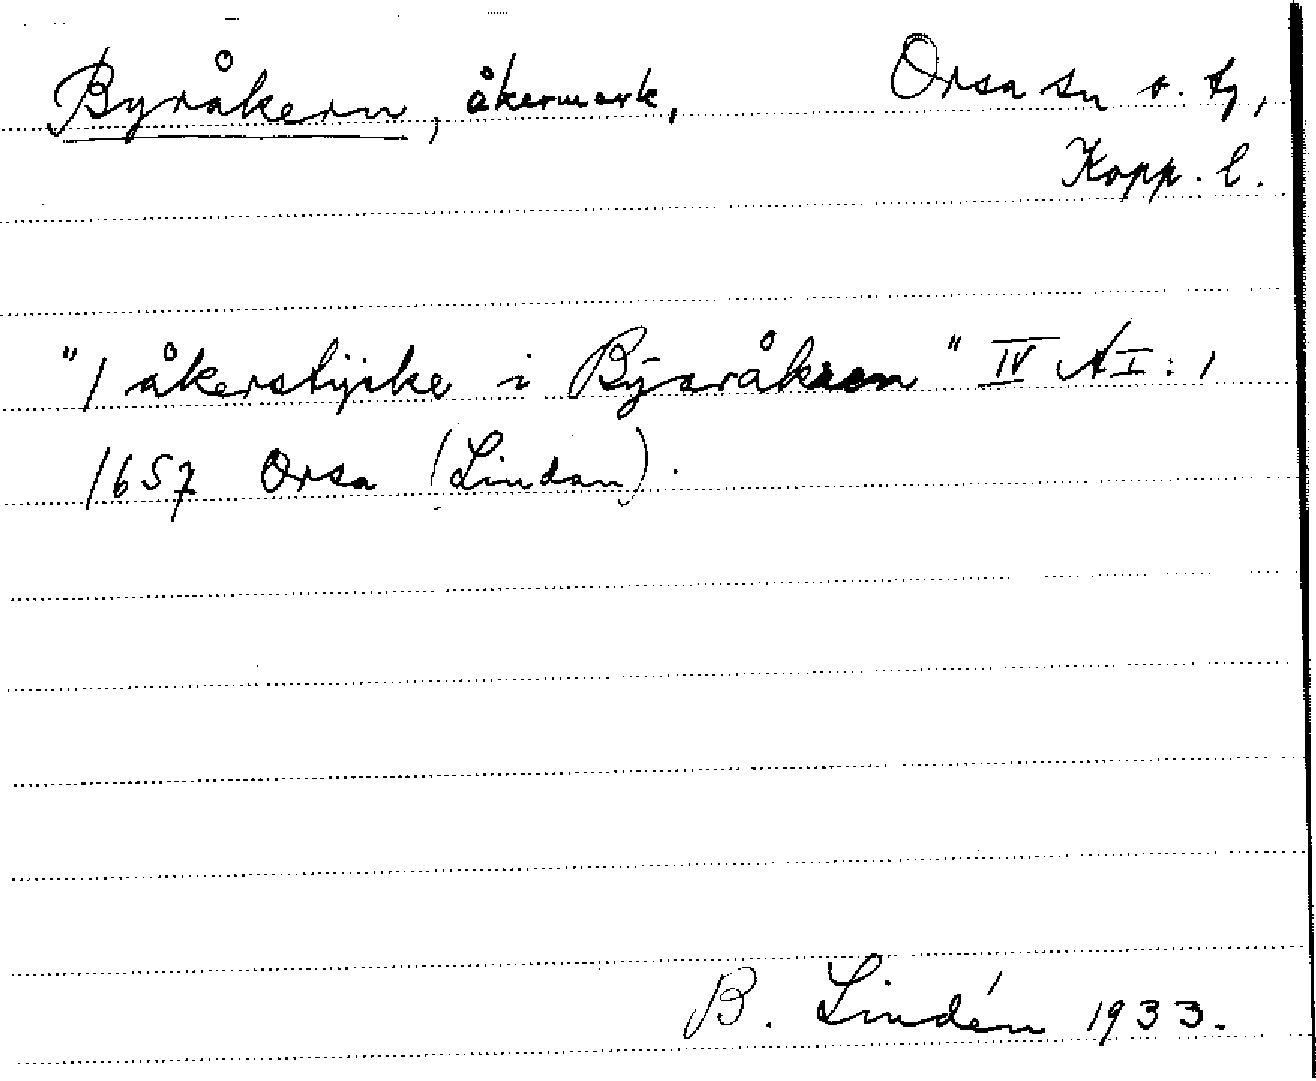 Byråkern, åkermark, Orsa sn o. tg,
Kopp. l.
"1 åkerstÿcke i Bÿsråkren" IV A I: 1
1657 Orsa (Lindan).
B. Lindén 1933.